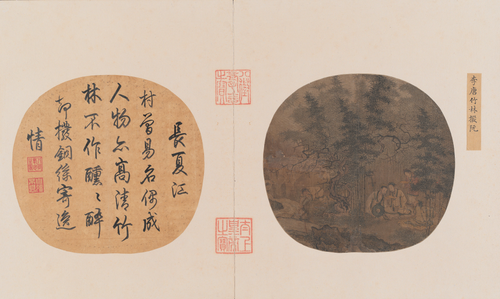 李唐竹林撥阮
長夏江
村曾易名偶成
人物亦高清竹
林不作醺〻醉
却撥銅寄逸
情